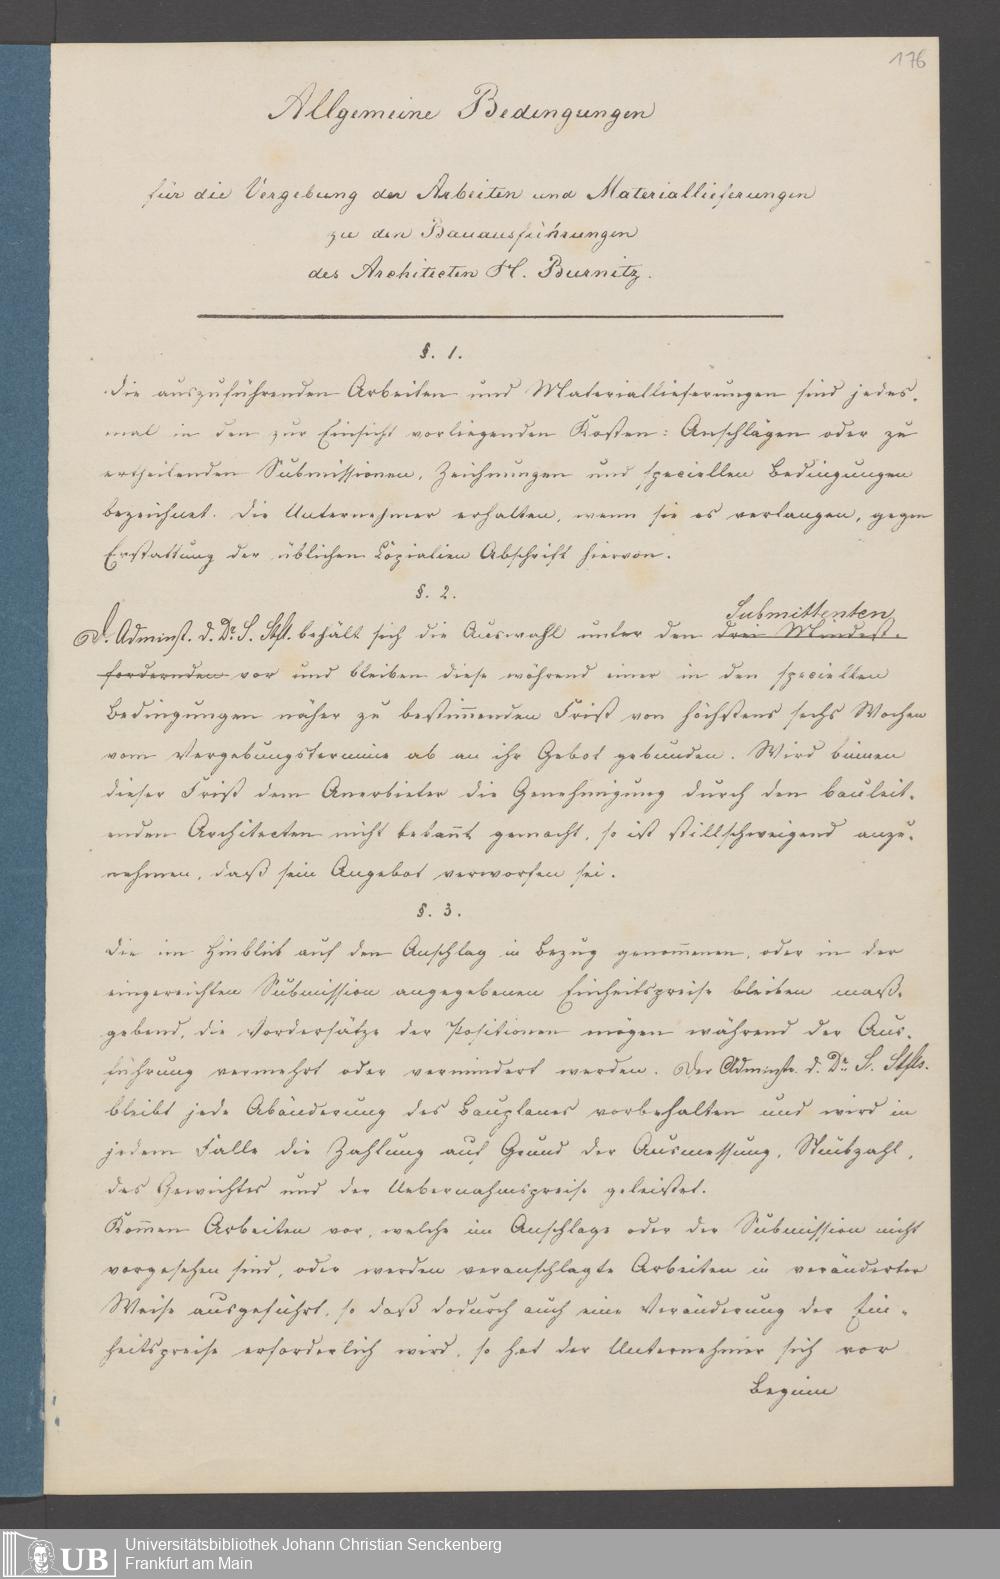 176
Allgemeine Bedingungen
für die Vergebung der Arbeiten und Materiallieferungen
zu den Bauausführungen
des Architecten H. Burnitz.
§. 1.
Die auszuführenden Arbeiten und Materiallieferungen sind jedes-
mal in den zur Einsicht vorliegenden Kosten: Anschlägen oder zu
ertheilenden Submissionen, Zeichnungen und speciellen Bedingungen
bezeichnet. Die Unternehmer erhalten, wenn sie es verlangen, gegen
Erstattung der üblichen Copialien Abschrift hiervon.
§. 2.
Submittenten
D. Adminst. d. Dr. S. Stft. behält sich die Auswahl unter den drei Mindest-
fordernden vor und bleiben diese während einer in den speciellen
Bedingungen näher zu bestim̄enden Frist von höchstens sechs Wochen
vom Vergebungstermine ab an ihr Gebot gebunden. Wird binnen
dieser Frist dem Anerbieter die Genehmigung durch den bauleit-
enden Architecten nicht bekan̄t gemacht, so ist stillschweigend anzu-
nehmen, daß sein Angebot verworfen sei.
§. 3.
Die im Hinblick auf den Anschlag in Bezug genom̄enen, oder in der
eingereichten Submission angegebenen Einheitspreise bleiben maß-
gebend, die Vordersätze der Positionen mögen während der Aus-
führung vermehrt oder vermindert werden. Der Adminstr. d. Dr. S. Stfts.
bleibt jede Abänderung des Bauplanes vorbehalten und wird in
jedem Falle die Zahlung auf Grund der Ausmessung, Stückzahl,
des Gewichtes und der Uebernahmspreise geleistet.
Kom̄en Arbeiten vor, welche im Anschlage oder der Submission nicht
vorgesehen sind, oder werden veranschlagte Arbeiten in veränderter
Weise ausgeführt, so daß dadurch auch eine Veränderung der Ein-
heitspreise erforderlich wird, so hat der Unternehmer sich vor
Beginn
UB
Universitätsbibliothek Johann Christian Senckenberg
Frankfurt am Main